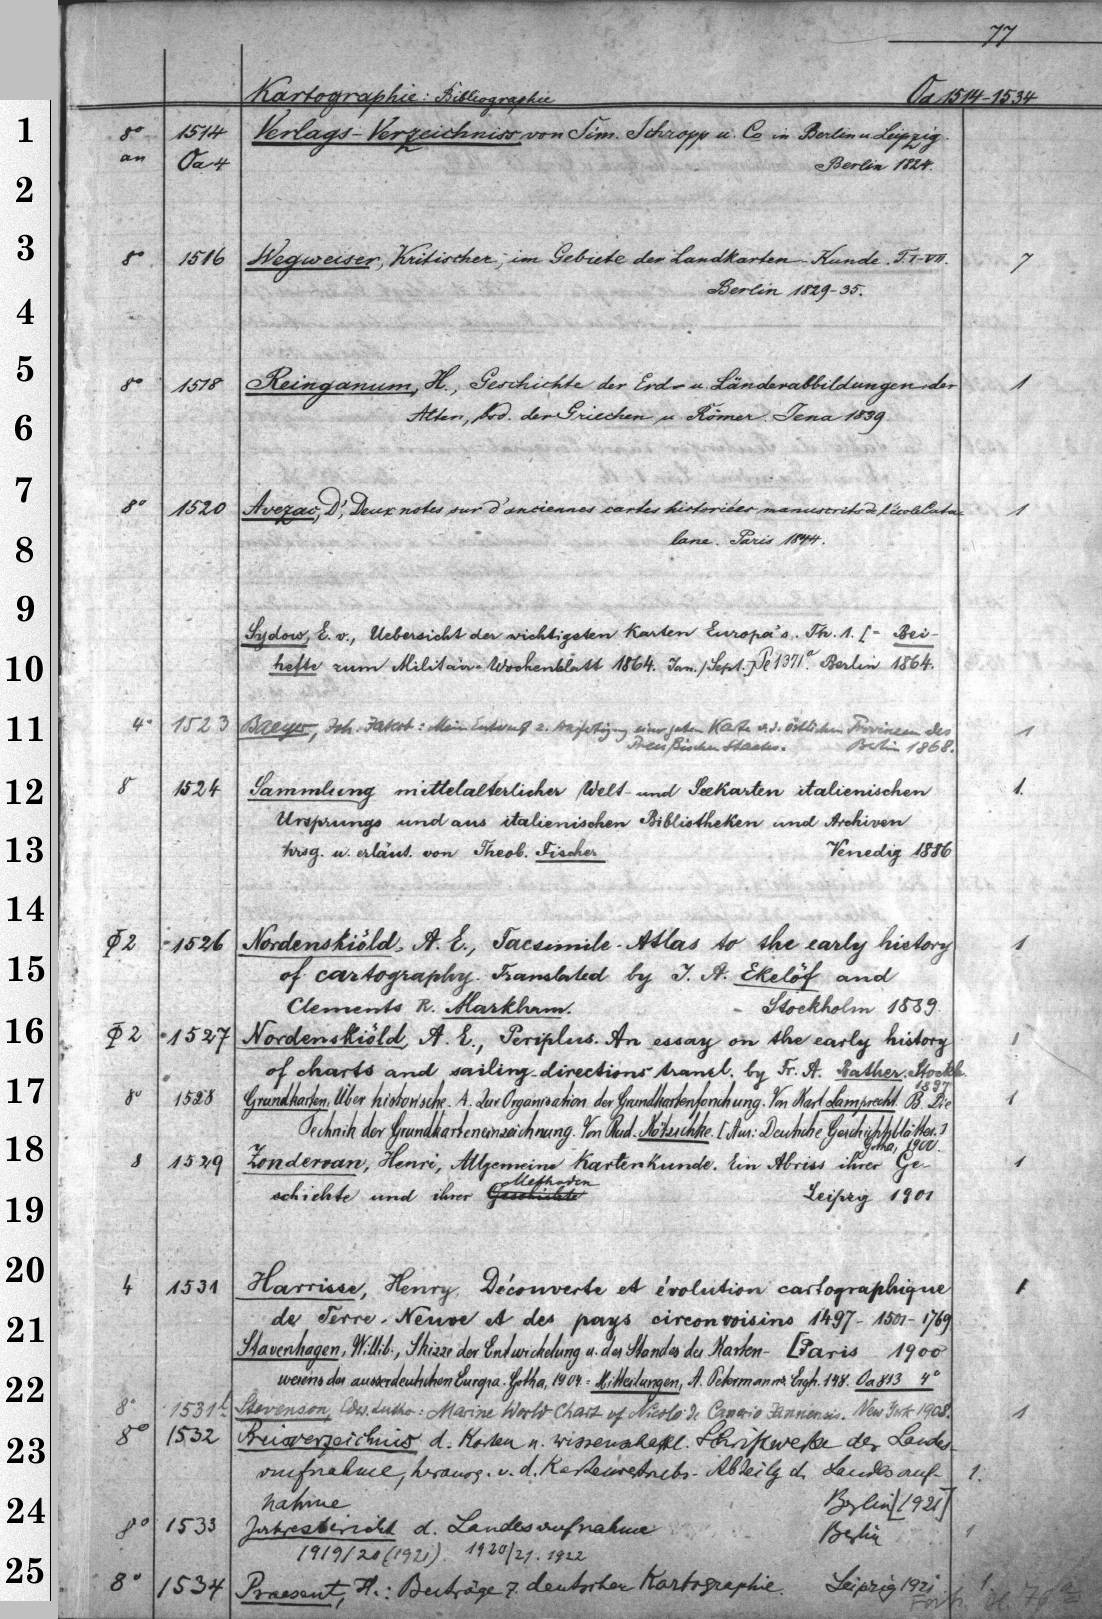 77
Kartographie: Bibliographie Oa 1514-1534
1 8° 1514 Verlags-Verzeichniss von Sim. Schropp u. Co in Berlin u Leipzig.
an Oa 4 Berlin 1824.
2
3 8° 1516 Wegweiser, Kritischer, im Gebiete der Landkarten-Kunde. T. I-VII. 7
4 Berlin 1829-35.
5 8° 1518 Reinganum, H., Geschichte der Erd- u. Länderabbildungen der 1
6 Alten, bsd. der Griechen u Römer. Jena 1839
7 8° 1520 Avezac, D', Deux notes sur d'anciennes cartes historiées manuscrits de l'école Cata- 1
8 lane. Paris 1844.
9 Sydow, E. v., Uebersicht der wichtigsten Karten Europa's. Th. 1. [= Bei-
10 hefte zum Militär-Wochenblatt 1864. Jan./Sept.] Pe 1371a. Berlin 1864.
11 4° 1523 Baeyer, Joh. Jakob: Mein Entwurf z. Anfertigung einer guten Karte v. d. östlichen Provinzen des 1
Preußischen Staates. Berlin 1868.
12 8 1524 Sammlung mittelalterlicher Welt- und Seekarten italienischen 1.
Ursprungs und aus italienischen Bibliotheken und Archiven
13 hrsg. u. erläut. von Theob. Fischer Venedig 1886
14 2 1526 Nordenskiöld, A. E., Facsimile-Atlas to the early history 1
15 of cartography. Translated by J. A. Ekelöf and
Clements R. Markham. Stockholm 1889.
16 2 1527 Nordenskiöld, A. E., Periplus. An essay on the early history 1
of charts and sailing-directions transl. by Fr. A. Bather. Stockh.
1897
17 8° 1528 Grundkarten, Über historische. A. Zur Organisation der Grundkartenforschung. Von Karl Lamprecht. B. Die 1
Technik der Grundkarteneinzeichnung. Von Rud. Kötzschke. [Aus: Deutsche Geschichtsblätter.]
Gotha, 1900.
18 8 1529 Zondervan, Henri, Allgemeine Kartenkunde. Ein Abriss ihrer Ge- 1
Methoden
19 schichte und ihrer Geschichte Leipzig 1901
20 4 1531 Harrisse, Henry, Découverte et évolution cartographique 1
de Terre-Neuve et des pays circonvoisins 1497-1501-1769
21 Stavenhagen, Willib., Skizze der Entwickelung u. des Standes des Karten- [Paris 1900
22 wesens des ausserdeutschen Europa. Gotha, 1904 = Mitteilungen, A. Petermanns Ergh. 148. Oa 813 4°
8° 1531b Stevenson, Edw. Luther: Marine World Chart of Nicolo de Canerio Januensis. New York 1908. 1
23 8° 1532 Preisverzeichnis d. Karten u. wissenschaftl. Schriftwerke der Landes-
aufnahme, herausg. v. d. Kartenvertriebs-Abteilg d. Landesauf- 1.
24 nahme Berlin [1921]
8° 1533 Jahresbericht d. Landesaufnahme Berlin 1
1919/20 (1921). 1920/21. 1922
25 8° 1534 Praesent, H.: Beiträge z. deutschen Kartographie. Leipzig 1921. 1